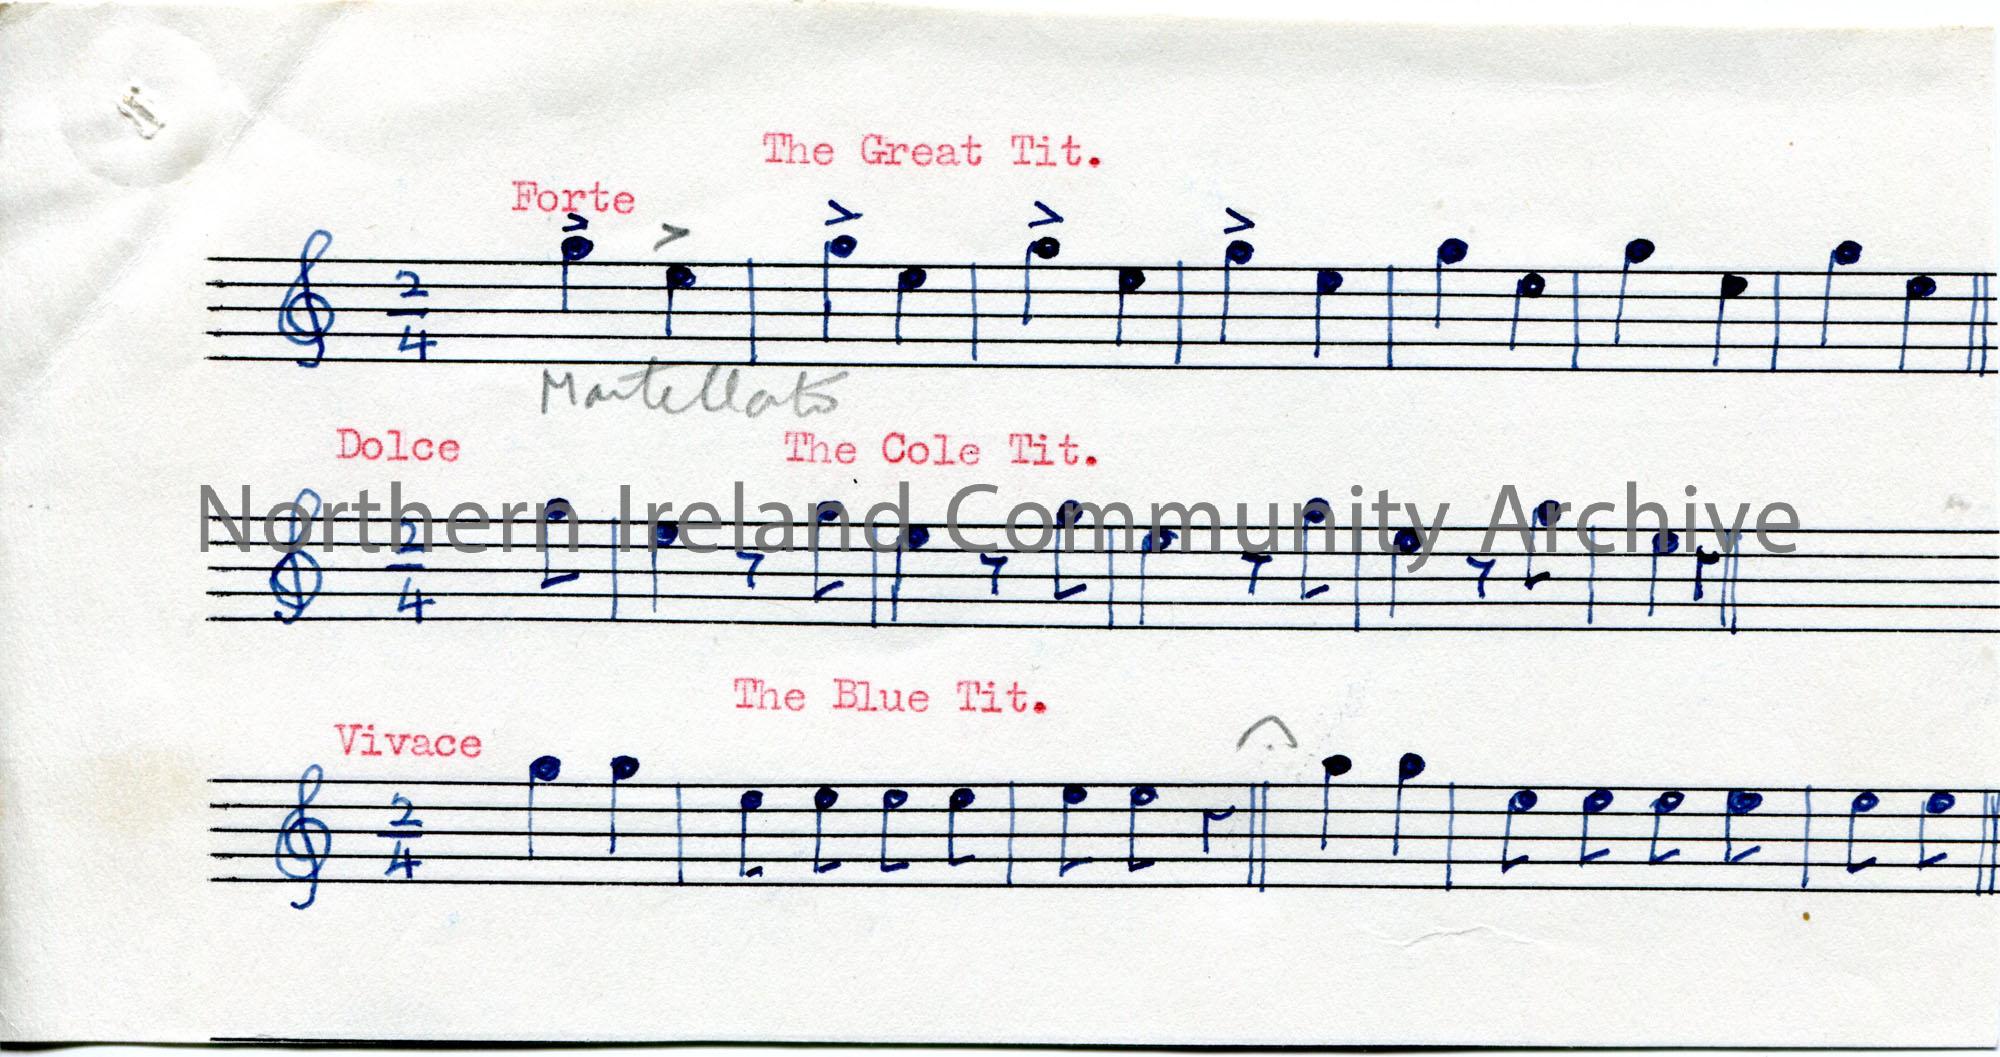 The Great Tit.
Forte
2
4
Martellato
Dolce
The Cole Tit.
Northern Ireland Community Archive
2
4
The Blue Tit.
Vivace
2
4